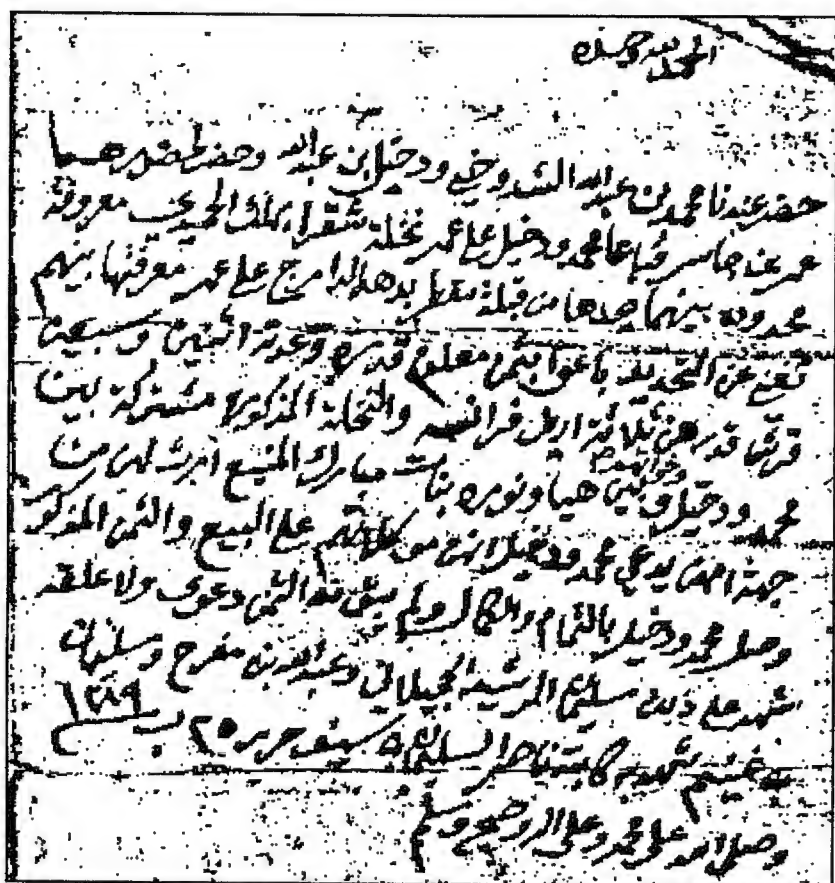 الحمد لله وحده
حضر عندنا محمد بن عبدالله الشدوخي ودخيل بن عبدالله وحضر لحضورهما
عمر بن جاسر فباعا محمد ودخيل على عمر نخلة شقرا بملك الحميدي معروفة
محدودة بينهما يحدها من قبلة على عمر معرفتها بينهم
تغني عن التحديد باعوا بثمن معلوم قدره وعدته اثنين وسبعين
قرش قدرهن ثلاثة اريل فرانسه والنخلة المذكورة مشتركة بين
محمد ودخيل وخواتهم هيا ونوره بنات مبارك المنيع لهن من
جهة امهن يدعي محمد ودخيل انهن موكلاتهم على البيع والثمن المذكور
وصل محمد ودخيل بالتمام والكمال ولم يبق له الثمن دعوى ولا علقه
شهد على ذلك سليمان الرشيد الحجيلاني وعبدالله بن مفرج وسليمان
بن غنيم شهد به كاتبه ناصر السليمان بن سيف حرر ٢٥ ب ١٢٨٩
وصلى الله على محمد وعلى اله وصحبه وسلم